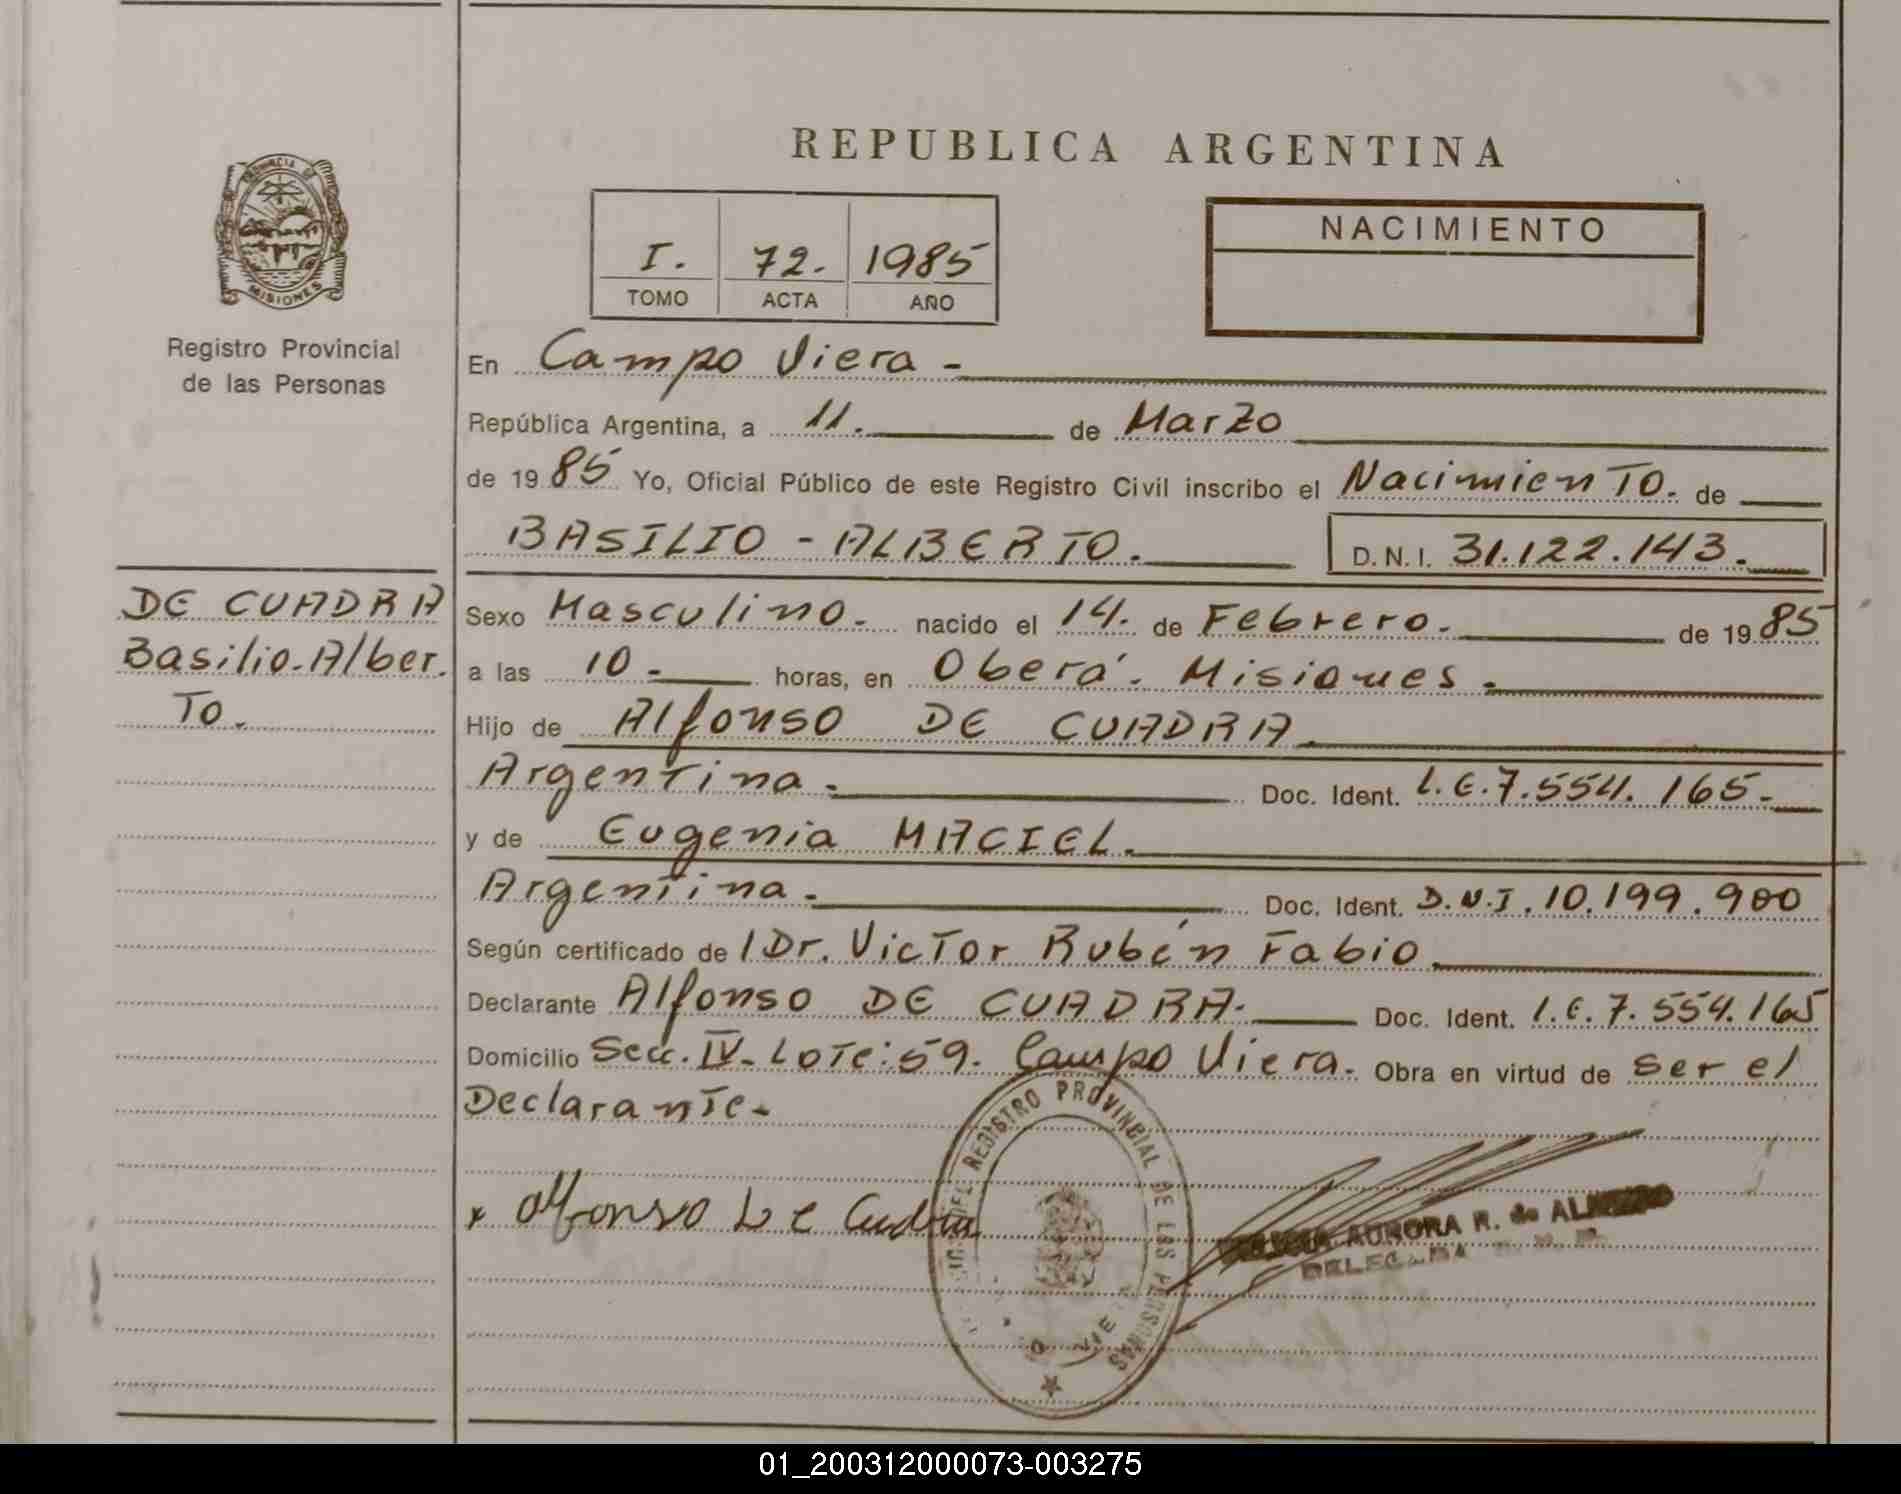 REPUBLICA ARGENTINA
PROVINCIA DE
MISIONES
Registro Provincial
de las Personas
I. 72. 1985
TOMO ACTA AÑO
NACIMIENTO
En Campo Viera -
República Argentina, a 11. de Marzo
de 1985 Yo, Oficial Público de este Registro Civil inscribo el Nacimiento. de
BASILIO - ALBERTO. D.N.I. 31.122.143.
DE CUADRA
Basilio-Alber.
To.
Sexo Masculino. nacido el 14. de Febrero. de 1985
a las 10- horas, en Oberá. Misiones.
Hijo de Alfonso DE CUADRA
Argentina. Doc. Ident. L.E.7.554.165-
y de Eugenia MACIEL.
Argentina. Doc. Ident. D.N.I.10.199.900
Según certificado de l Dr. Victor Rubén Fabio.
Declarante Alfonso DE CUADRA. Doc. Ident. L.E.7.554.165
Domicilio Secc. IV- Lote: 59. Campo Viera. Obra en virtud de ser el
Declarante.
DEL REGISTRO PROVINCIAL DE LAS PERSONAS
x Alfonso De Cudra
AURORA R. de
01_200312000073-003275